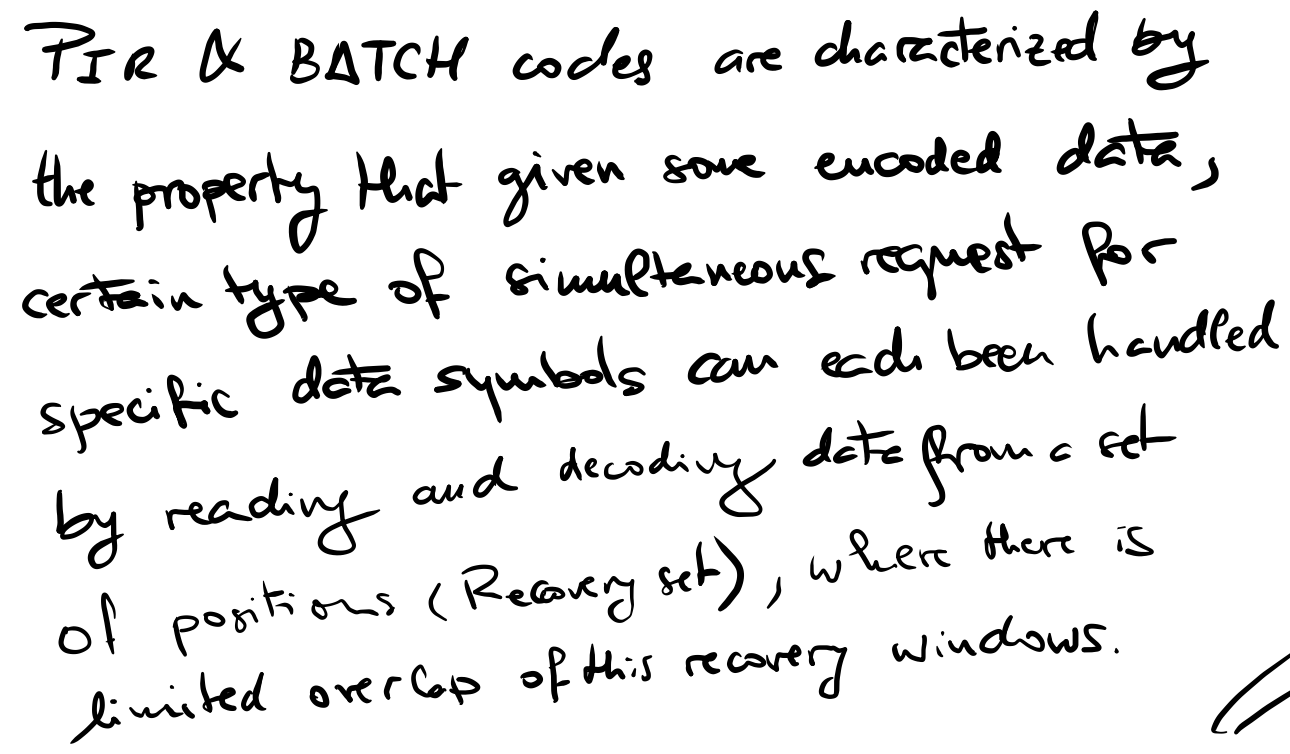 PIR & BATCH codes are characterized by
the property that given some encoded data,
certain type of simulteneous request for
specific data symbols can each been handled
by reading and decoding data from a set
of positions (Recovery set), where there is
limited overlap of this recovery windows.